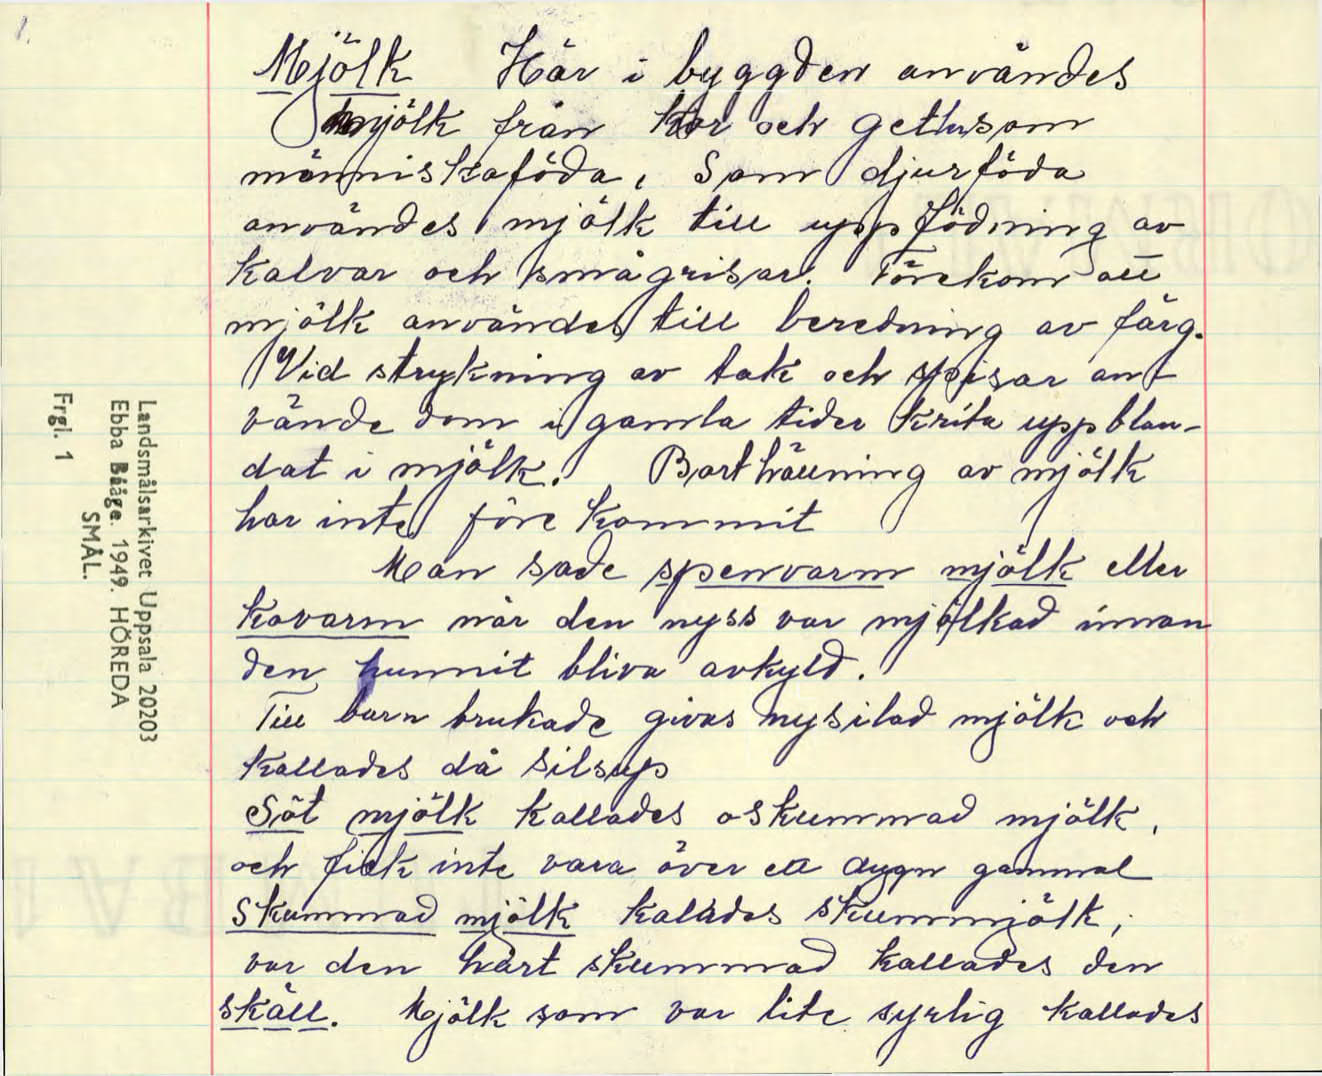 1.
Mjölk Här i byggden användes
mjölk från kor och getter som
människoföda, Som djurföda
användes mjölk till uppfödning av
kalvar och smågrisar. Förekom att
mjölk användes till beredning av färg.
Vid strykning av tak och spisar an-
vände dom i gamla tider krita uppblan-
dat i mjölk. Borthällning av mjölk
har inte före kommit
Man sade spenvarm mjölk eller
kovarm när den nyss var mjölkad innan
den hunnit bliva avkyld.
Till barn brukade givas nysilad mjölk och
kallades då silsup
Söt mjölk kallades oskummad mjölk,
och fick inte vara över ett dygn gammal
Skummad mjölk kalades skummjölk,
var den hårt skummad kallades den
skäll. Mjölk som var lite syrlig kallades
Landsmålsarkivet Uppsala 20203
Ebba Bååge. 1949. HÖREDA
SMÅL.
Frgl. 1